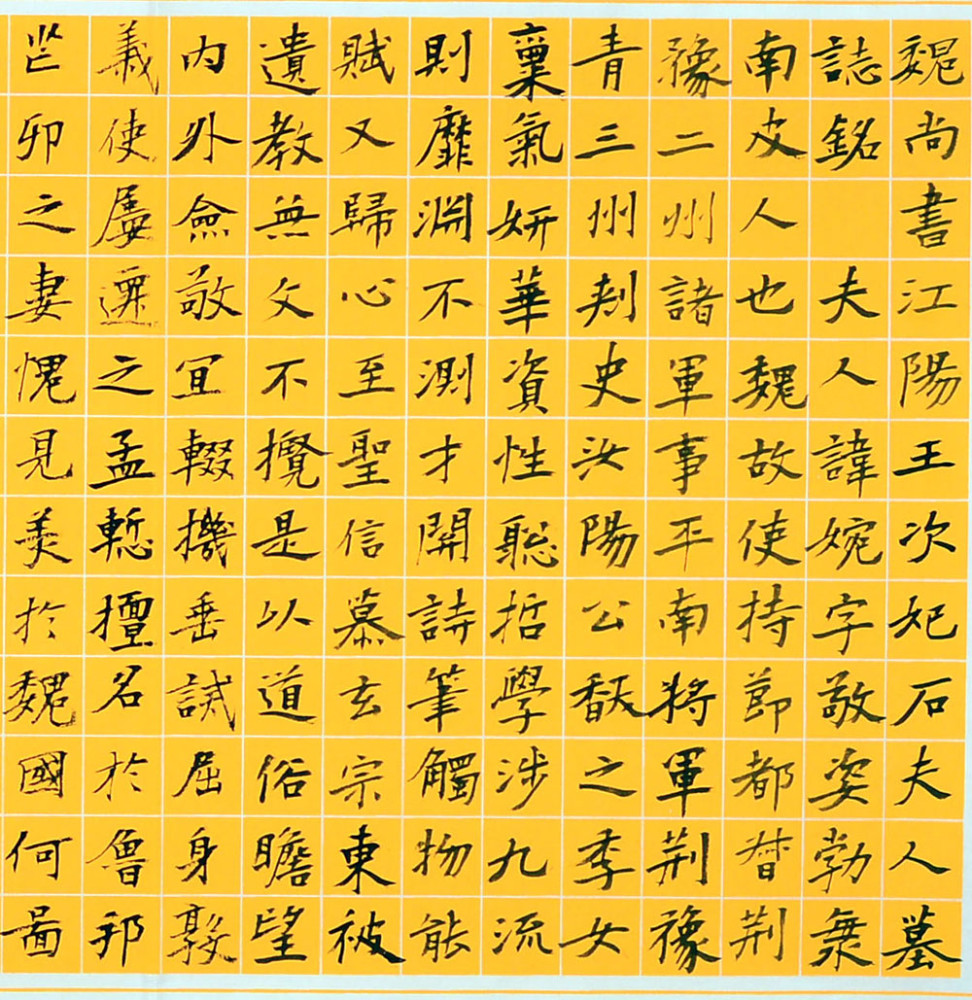 魏尚書江陽王次妃石夫人墓
誌銘 夫人諱婉字敬姿勃海
南皮人也魏故使持節都督荊
豫二州諸軍事平南將軍荊豫
青三州刾史汝陽公馛之季女
稟氣妍華資性聡哲學涉九流
則靡淵不測才開詩筆觸物能
賦又歸心至聖信慕玄宗東被
遺教無文不攬是以道俗瞻望
内外僉敬宜輟機垂誡屈身敦
義使屢遷之孟慙擅名於魯邦
芒卯之妻愧見美於魏國何啚